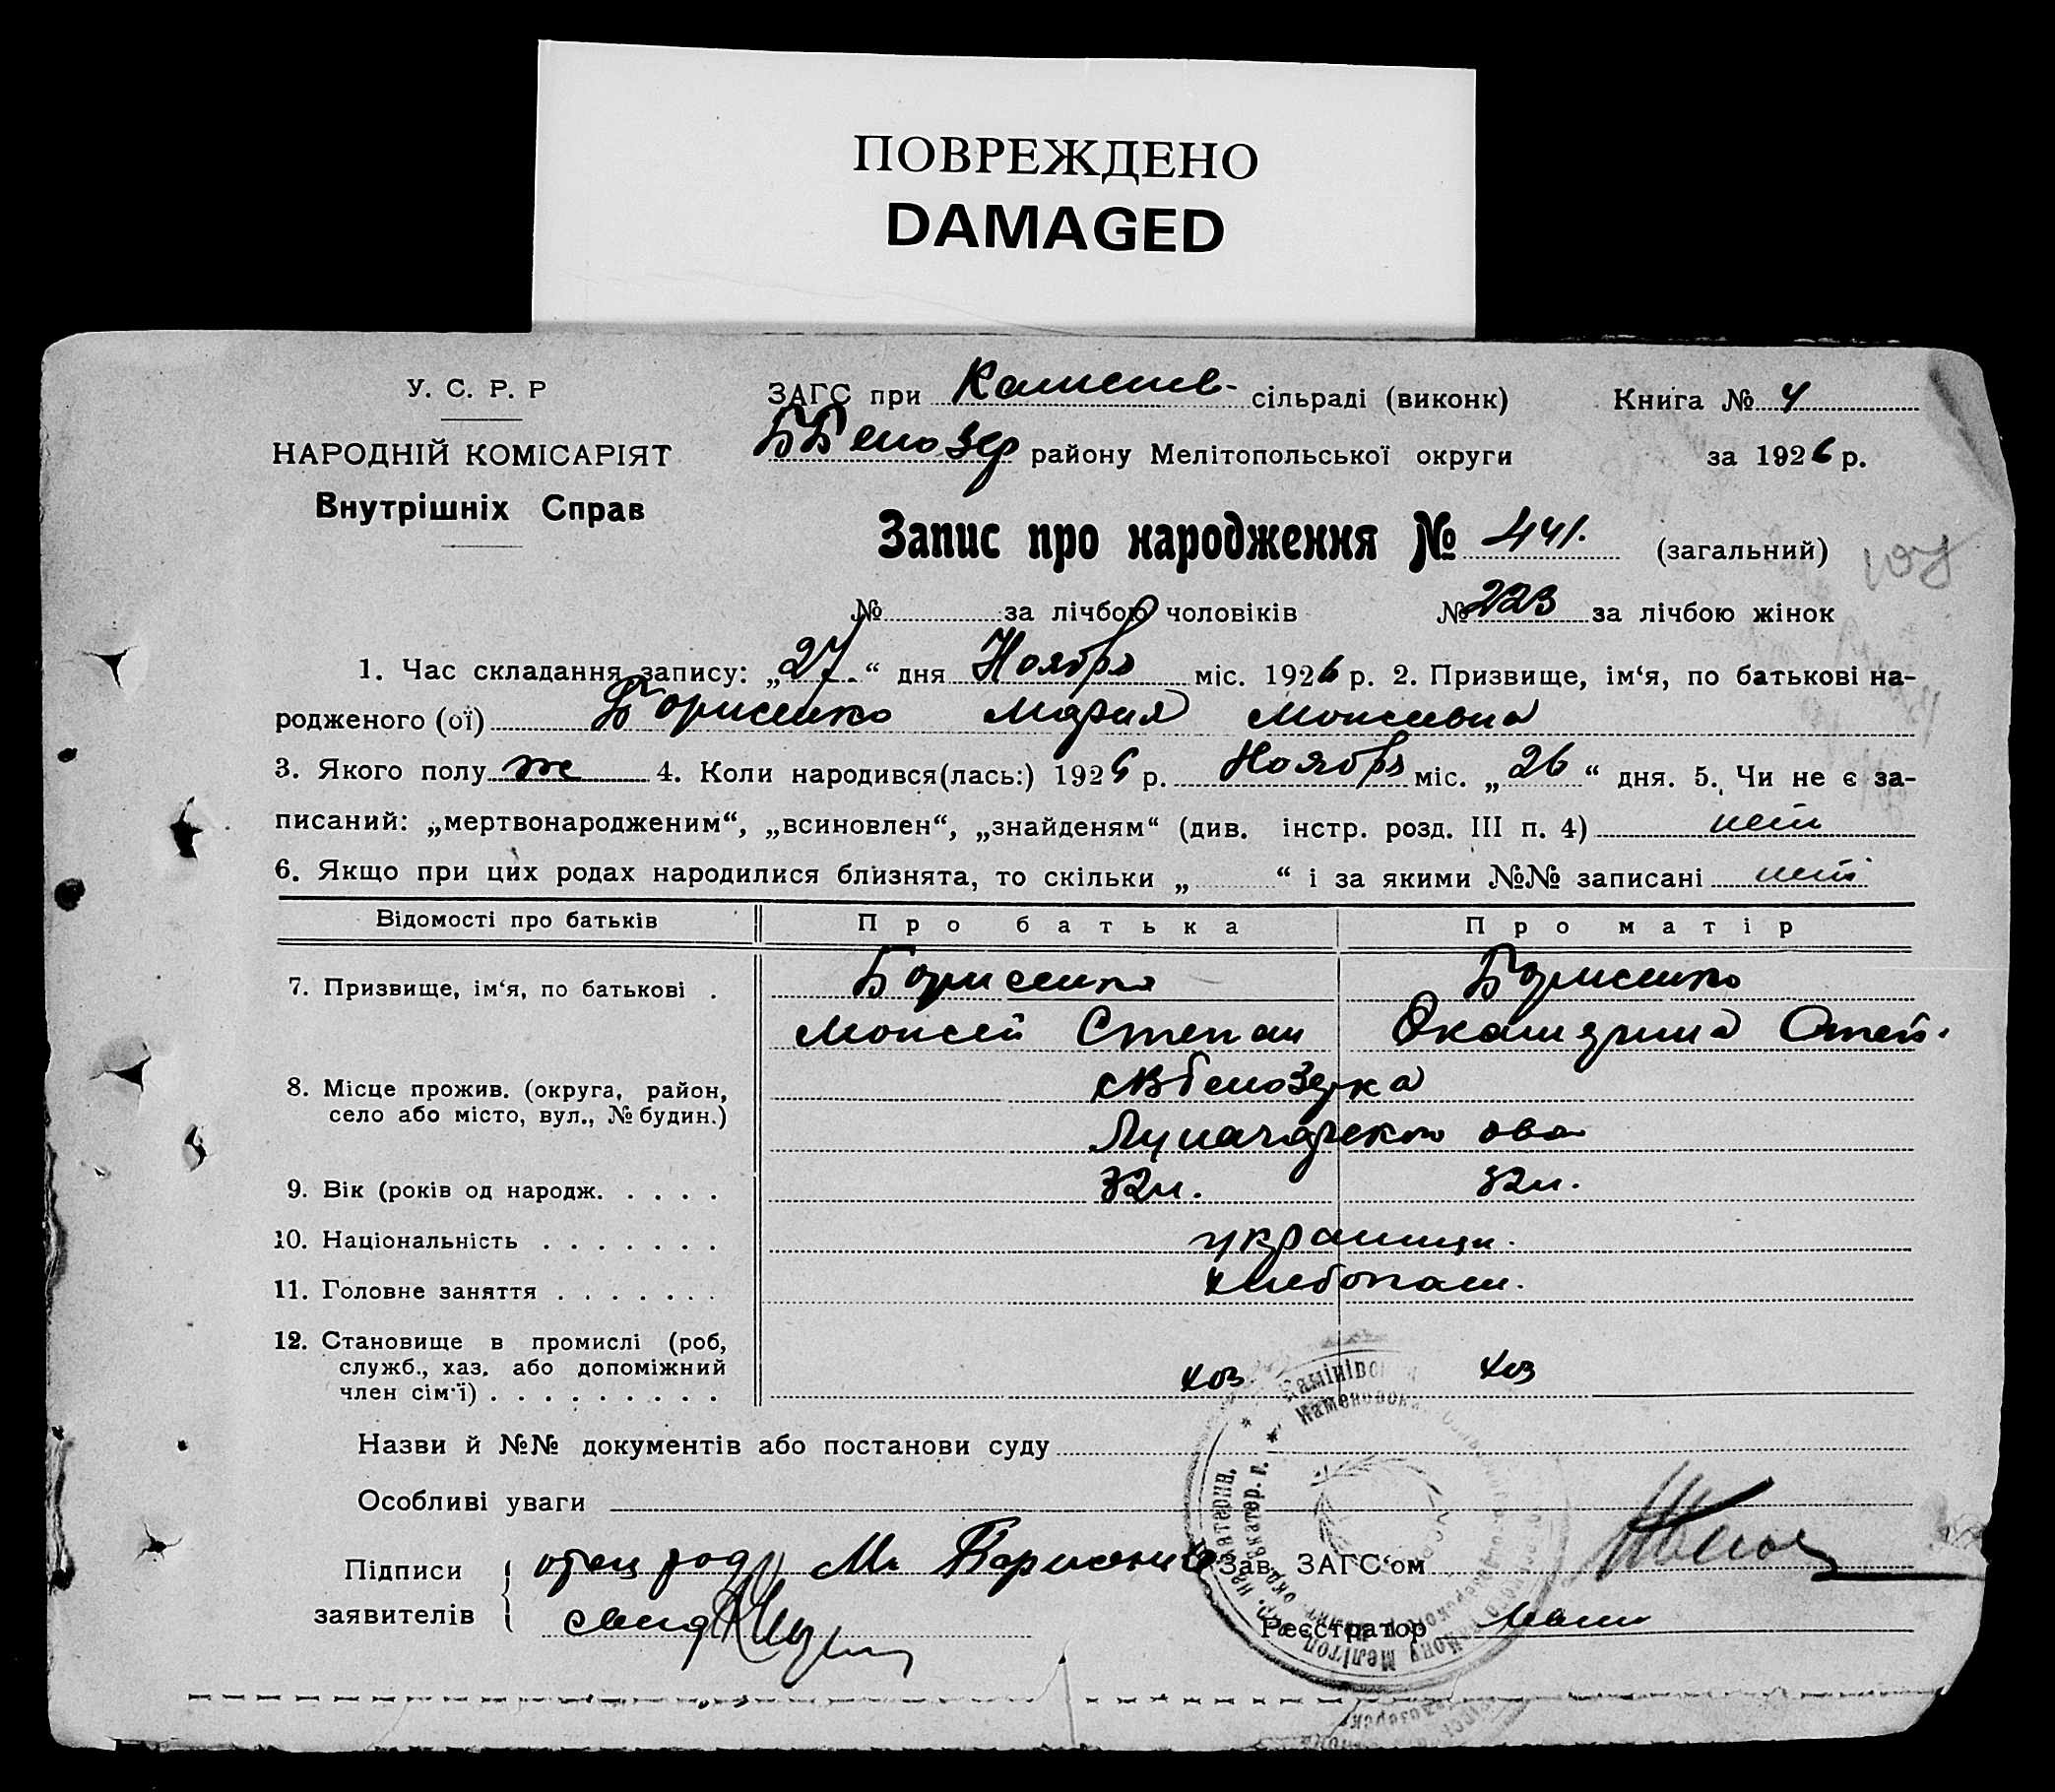 ПОВРЕЖДЕНО
DAMAGED
У. С. Р. Р
НАРОДНІЙ КОМІСАРІЯТ
Внутрішніх Справ
ЗАГС при Каменів- сільраді (виконк)
ББелозер району Мелітопольської округи
Книга № 4
за 1926 р.
Запис про народження № 441. (загальний)
№ за лічбою чоловіків № 223 за лічбою жінок
1. Час складання запису: „27“ дня Ноября міс. 1926 р. 2. Призвище, ім‘я, по батькові на-
родженого (ої) Борисенко Мария Моисеевна
3. Якого полу же 4. Коли народився(лась:) 1926 р. Ноября міс. „26“ дня. 5. Чи не є за-
писаний: „мертвонародженим“, „всиновлен“, „знайденям“ (див. інстр. розд. III п. 4) нет
6. Якщо при цих родах народилися близнята, то скільки „ “ і за якими №№ записані нет
Відомості про батьків Про батька Про матір
7. Призвище, ім‘я, по батькові . Борисенко Борисенко
Моисей Степан Екатерина Степ.
8. Місце прожив. (округа, район,
село або місто, вул., № будин.)
Луначарского
9. Вік (років од народж. . . . . 32л. 32л.
10. Національність . . . . . . . украинцы.
11. Головне заняття . . . . . . . хлебопаш.
12. Становище в промислі (роб,
служб., хаз. або допоміжний
член сім‘ї) . . . . . . . . . хоз хоз
Назви й №№ документів або постанови суду
Особливі уваги
Підписи
заявителів
отец М. Борисенко
Зав. ЗАГС‘ом
Реєстратор